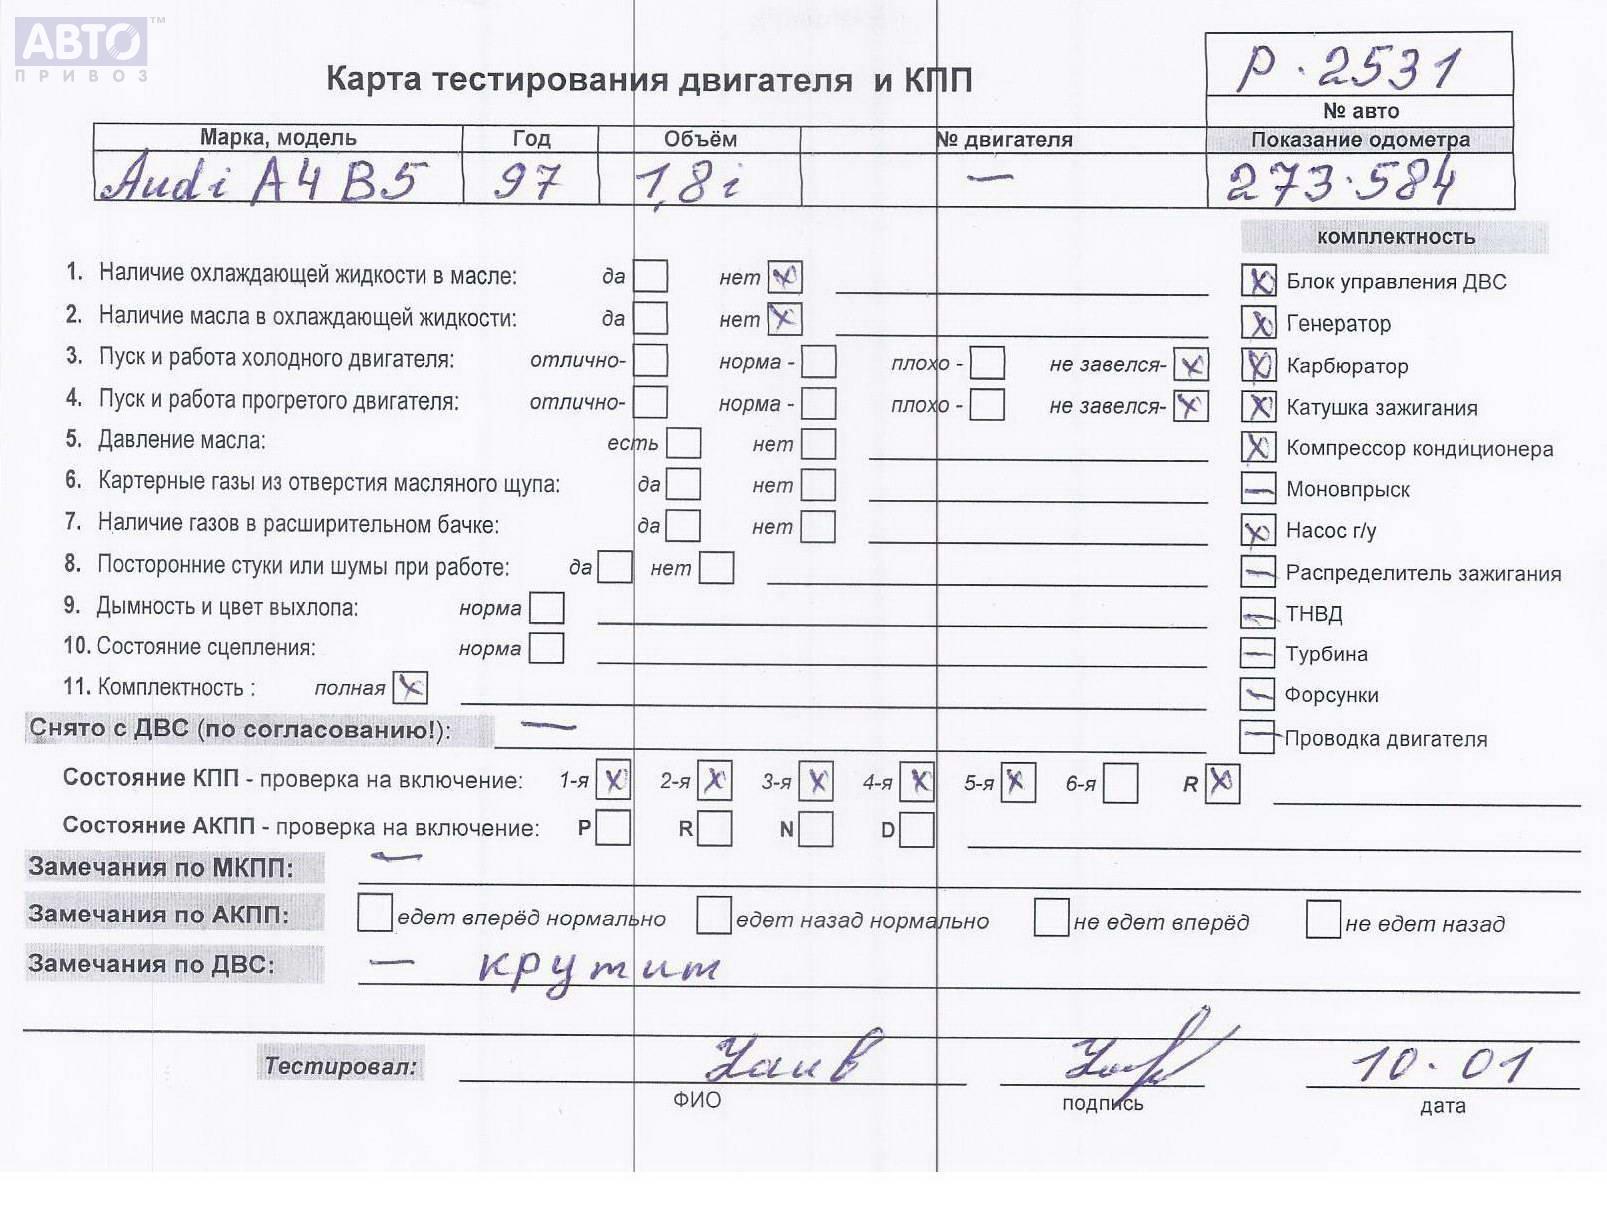 АВТО™
ПРИВОЗ
Карта тестирования двигателя и КПП
Р.2531
№ авто
Марка, модель Год Объём № двигателя Показание одометра
Audi A4 B5 97 1,8i — 273.584
комплектность
1. Наличие охлаждающей жидкости в масле: да нет
2. Наличие масла в охлаждающей жидкости: да нет
3. Пуск и работа холодного двигателя: отлично- норма - плохо - не завелся-
4. Пуск и работа прогретого двигателя: отлично- норма - плохо - не завелся-
5. Давление масла: есть нет
6. Картерные газы из отверстия масляного щупа: да нет
7. Наличие газов в расширительном бачке: да нет
8. Посторонние стуки или шумы при работе: да нет
9. Дымность и цвет выхлопа: норма
10. Состояние сцепления: норма
11. Комплектность : полная
Блок управления ДВС
Генератор
Карбюратор
Катушка зажигания
Компрессор кондиционера
Моновпрыск
Насос г/у
Распределитель зажигания
ТНВД
Турбина
Форсунки
Проводка двигателя
Снято с ДВС (по согласованию!): —
Состояние КПП - проверка на включение: 1-я 2-я 3-я 4-я 5-я 6-я R
Состояние АКПП - проверка на включение: P R N D
Замечания по МКПП: —
Замечания по АКПП: едет вперёд нормально едет назад нормально не едет вперёд не едет назад
Замечания по ДВС: — крутит
Тестировал: 10.01
ФИО подпись дата